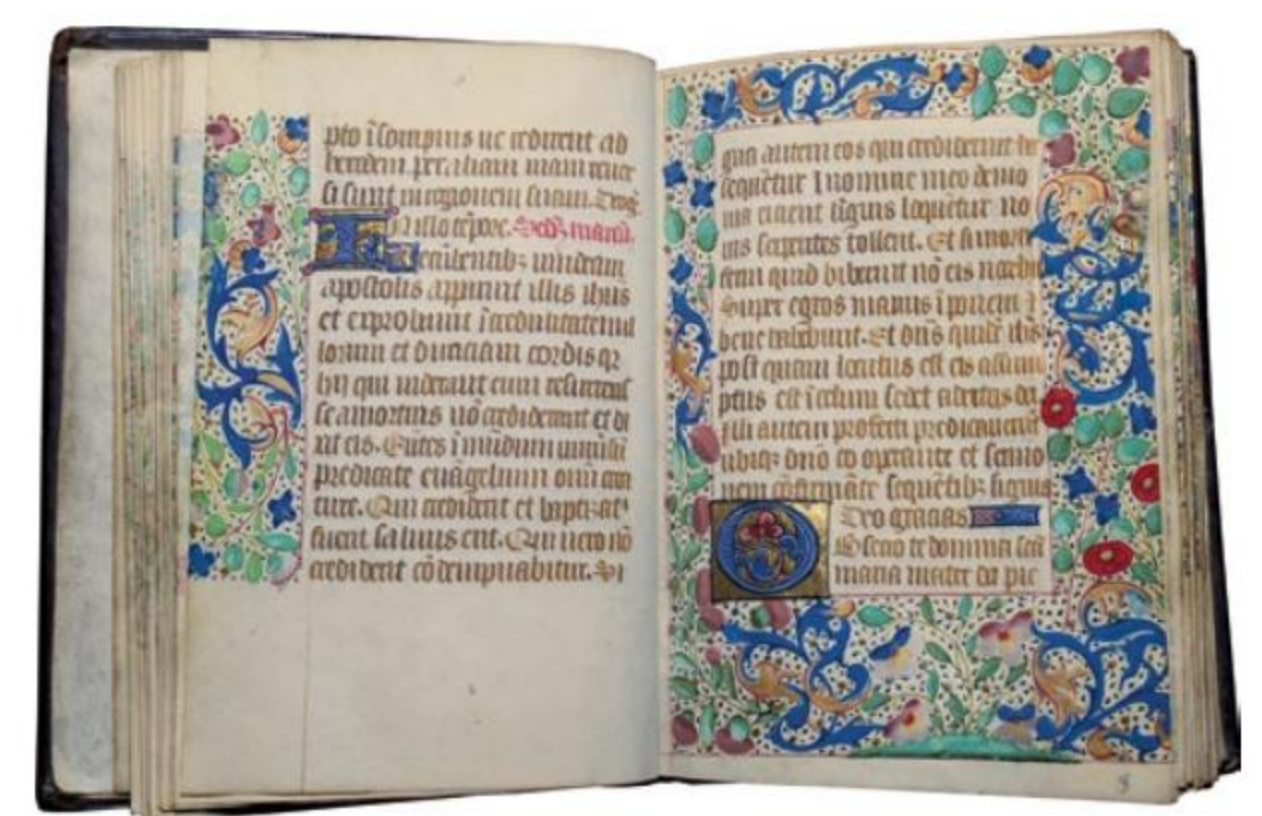 pto i sompnis ne redirent ad
herodem per aliam viam reuer
si sunt in regionem suam. Deo gr̄.
In illo tēpore. Scd̄z marcū.
Recūbentibz undecim
apostolis apparuit illis ihūs
et exprobrauit īcredulitatem il
lorum et duriciam cordis qr
hij qui uiderant eum resurrexis
se a mortuis nō crediderunt et di
xit eis. Eūtes ī mūdum uniūsū
predicate euāgelium om̄i crea
ture. Qui crediderit et baptizat9
fuerit saluus erit. Qui uero nō
crediderit cōdempnabitur. Si
gna autem eos qui crediderint he
sequētur I nomine meo demo
nia eicient liguis loquētur no
uis serpentes tollent. Et si morti
ferum quid biberint nō eis nocebit
Super egros manus īponent z
bene habebunt. Et dn̄s quidē ihs̄
post quam locutus est eis assum
ptus est ī celum sedet a dextris dei
illi autem profecti predicauerunt
ubiqz dn̄o co operante et sermo
nem cōfirmāte sequētibz signis
Deo gracias
Obsecro te domina scā
maria mater dei pie
8